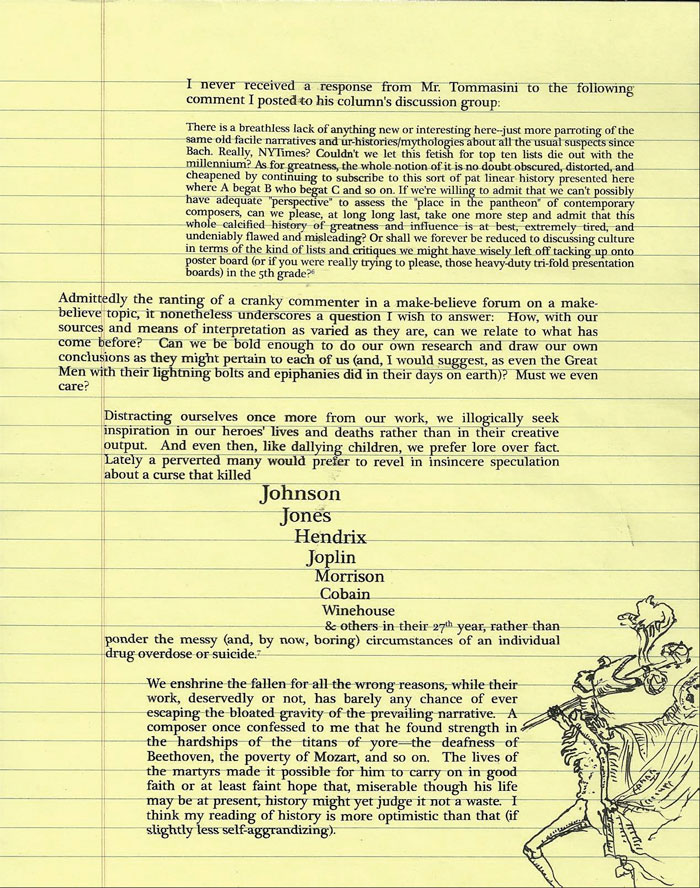 I never received a response from Mr. Tommasini to the following
comment I posted to his column's discussion group:
There is a breathless lack of anything new or interesting here--just more parroting of the
same old facile narratives and ur-histories/mythologies about all the usual suspects since
Bach. Really, NYTimes? Couldn't we let this fetish for top ten lists die out with the
millennium? As for greatness, the whole notion of it is no doubt obscured, distorted, and
cheapened by continuing to subscribe to this sort of pat linear history presented here
where A begat B who begat C and so on. If we're willing to admit that we can't possibly
have adequate "perspective" to assess the "place in the pantheon" of contemporary
composers, can we please, at long long last, take one more step and admit that this
whole calcified history of greatness and influence is at best, extremely tired, and
undeniably flawed and misleading? Or shall we forever be reduced to discussing culture
in terms of the kind of lists and critiques we might have wisely left off tacking up onto
poster board (or if you were really trying to please, those heavy-duty tri-fold presentation
boards) in the 5th grade?⁶
Admittedly the ranting of a cranky commenter in a make-believe forum on a make-
believe topic, it nonetheless underscores a question I wish to answer: How, with our
sources and means of interpretation as varied as they are, can we relate to what has
come before? Can we be bold enough to do our own research and draw our own
conclusions as they might pertain to each of us (and, I would suggest, as even the Great
Men with their lightning bolts and epiphanies did in their days on earth)? Must we even
care?
Distracting ourselves once more from our work, we illogically seek
inspiration in our heroes' lives and deaths rather than in their creative
output. And even then, like dallying children, we prefer lore over fact.
Lately a perverted many would prefer to revel in insincere speculation
about a curse that killed
Johnson
Jones
Hendrix
Joplin
Morrison
Cobain
Winehouse
& others in their 27th year, rather than
ponder the messy (and, by now, boring) circumstances of an individual
drug overdose or suicide.⁷
We enshrine the fallen for all the wrong reasons, while their
work, deservedly or not, has barely any chance of ever
escaping the bloated gravity of the prevailing narrative. A
composer once confessed to me that he found strength in
the hardships of the titans of yore—the deafness of
Beethoven, the poverty of Mozart, and so on. The lives of
the martyrs made it possible for him to carry on in good
faith or at least faint hope that, miserable though his life
may be at present, history might yet judge it not a waste. I
think my reading of history is more optimistic than that (if
slightly less self-aggrandizing).